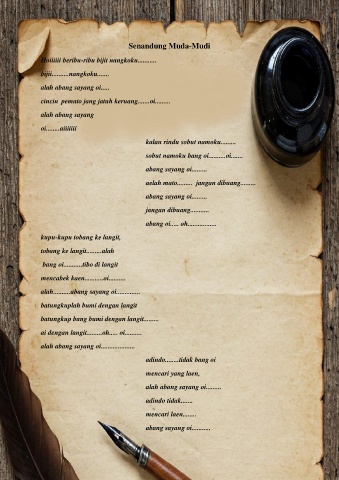 Senandung Muda-Mudi
Hoiiiii beribu-ribu bijit nangkoku..........
bijii.........nangkoku......
alah abang sayang oi.....
cincin pemato jang jatuh keruang......oi........
alah abang sayang
oi.......aiiiiiii
kalau rindu sobut namoku........
sobut namoku bang oi..........oi......
abang sayang oi........
aelah mato........ jangan dibuang........
abang sayang oi........
jangan dibuang..........
abang oi..... oh...............
kupu-kupu tobang ke langit,
tobang ke langit........alah
bang oi..........tibo di langit
mencabek kaen..........oi..........
alah.........abang sayang oi............
batungkuplah bumi dengan langit
batungkup bang bumi dengan langit........
ai dengan langit........oh..... oi.........
alah abang sayang oi..................
adindo.......tidak bang oi
mencari yang laen,
alah abang sayang oi........
adindo tidak......
mencari laen.......
abang sayang oi..........